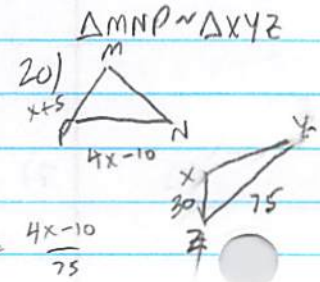 ΔMNP ~ ΔXYZ
20)
M
x+5
P
N
4x-10
Y
X
30
75
Z
4x-10
75